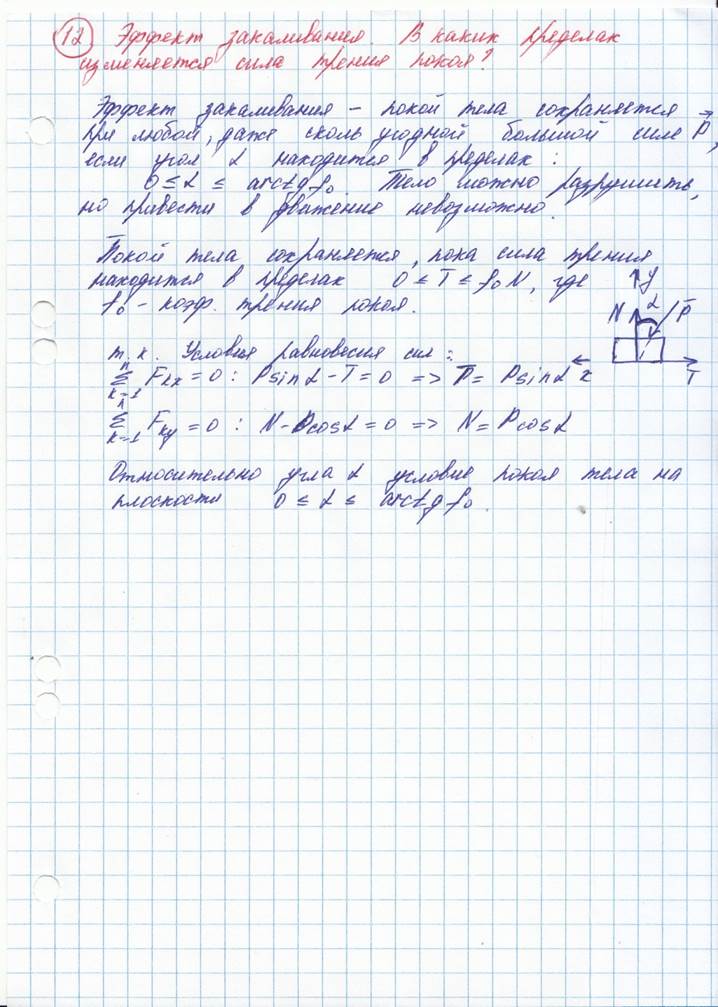 12 Эффект закаливания. В каких пределах
изменяется сила трения покоя?
Эффект закаливания – покой тела сохраняется
при любой, даже сколь угодной большой силе P,
если угол α находится в пределах:
0 ≤ α ≤ arctg f₀. Тело можно разрушить,
но привести в движение невозможно.
Покой тела сохраняется, пока сила трения
находится в пределах 0 ≤ T ≤ f₀ N, где
f₀ – коэф. трения покоя.
y
N α P
x T
т.к. Условия равновесия сил:
n ∑ k=1 Fkx = 0 : P sin α – T = 0 => T = P sin α
n ∑ k=1 Fky = 0 : N – P cos α = 0 => N = P cos α
Относительно угла α условие покоя тела на
плоскости 0 ≤ α ≤ arctg f₀